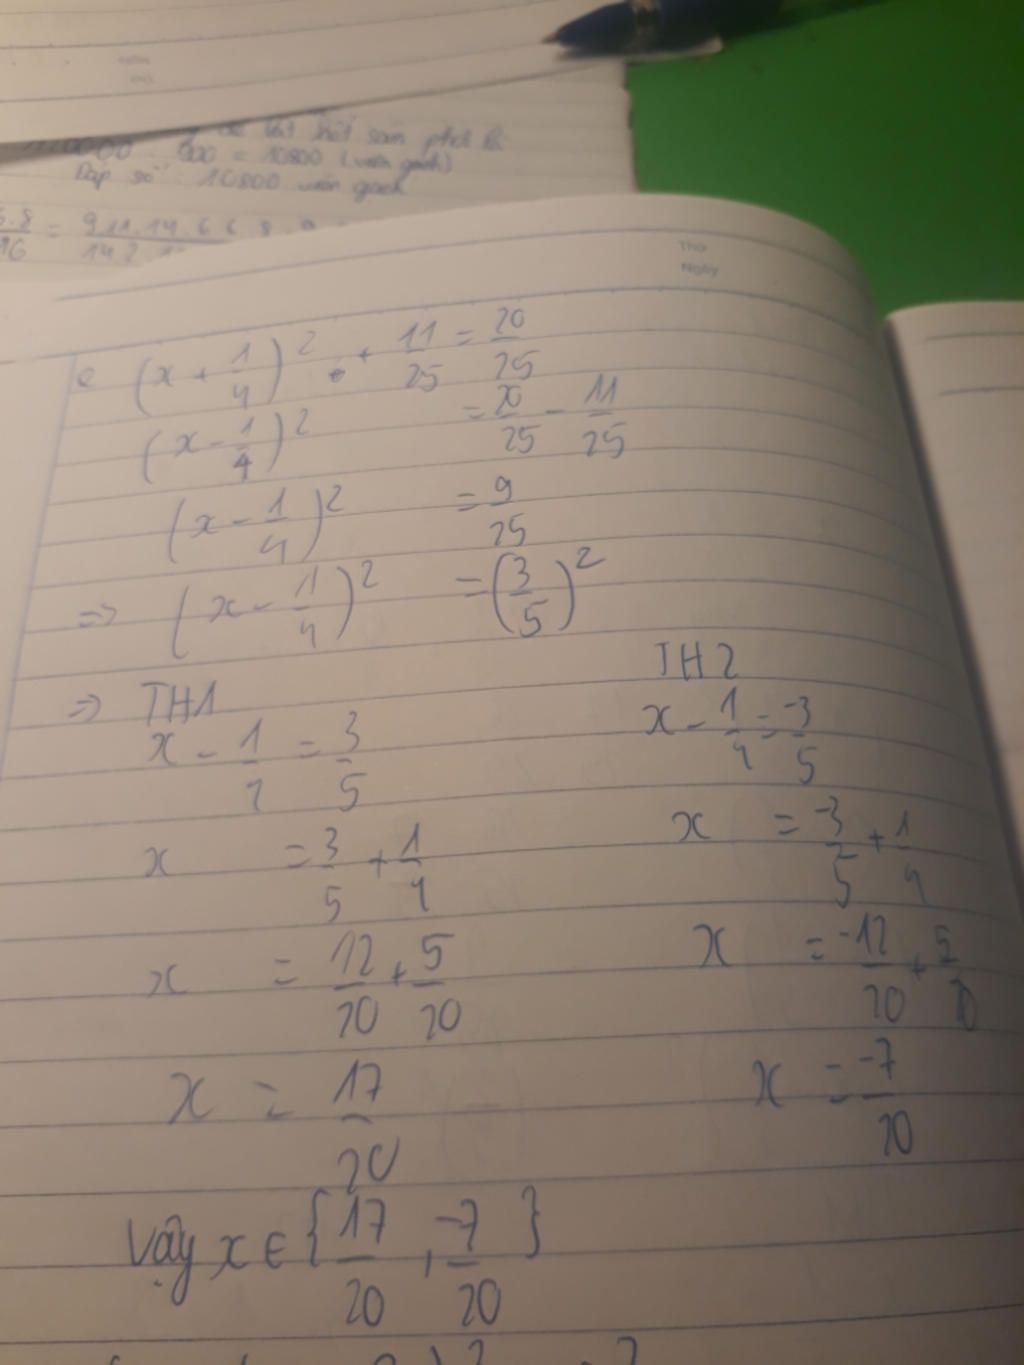 để lát hết sàn phòng là
900 = 10800 (viên gạch)
Đáp số : 10800 viên gạch
Thứ
Ngày
e (x + 1/4)² + 11/25 = 20/25
(x - 1/4)² = 20/25 - 11/25
(x - 1/4)² = 9/25
=> (x - 1/4)² = (3/5)²
=> TH1
x - 1/4 = 3/5
x = 3/5 + 1/4
x = 12/20 + 5/20
x = 17/20
TH2
x - 1/4 = -3/5
x = -3/5 + 1/4
x = -12/20 + 5/20
x = -7/20
Vậy x ∈ {17/20, -7/20}